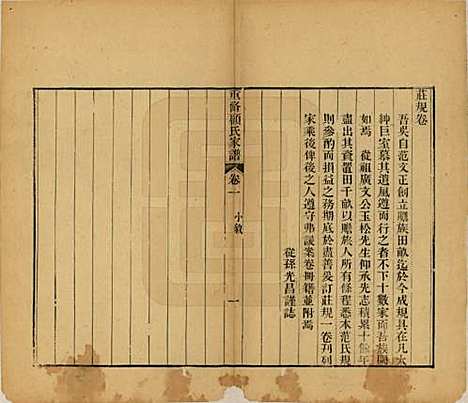 莊規卷
吾吳自范文正創立贍族田畝迄於今成規具在凡大
紳巨室慕其遺風遵而行之者不下十數家而吾族闕
如焉 從祖廣文公玉松先生仰承先志積累十餘年
盡出其資置田千畝以贍族人所有條程悉本范氏規
則參酌而損益之務期底於盡善爰訂莊規一卷刋列
家乘後俾後之人遵守弗諼案卷冊籍並附焉
從孫光昌謹誌
重脩顧氏家譜 卷一 小敘 一